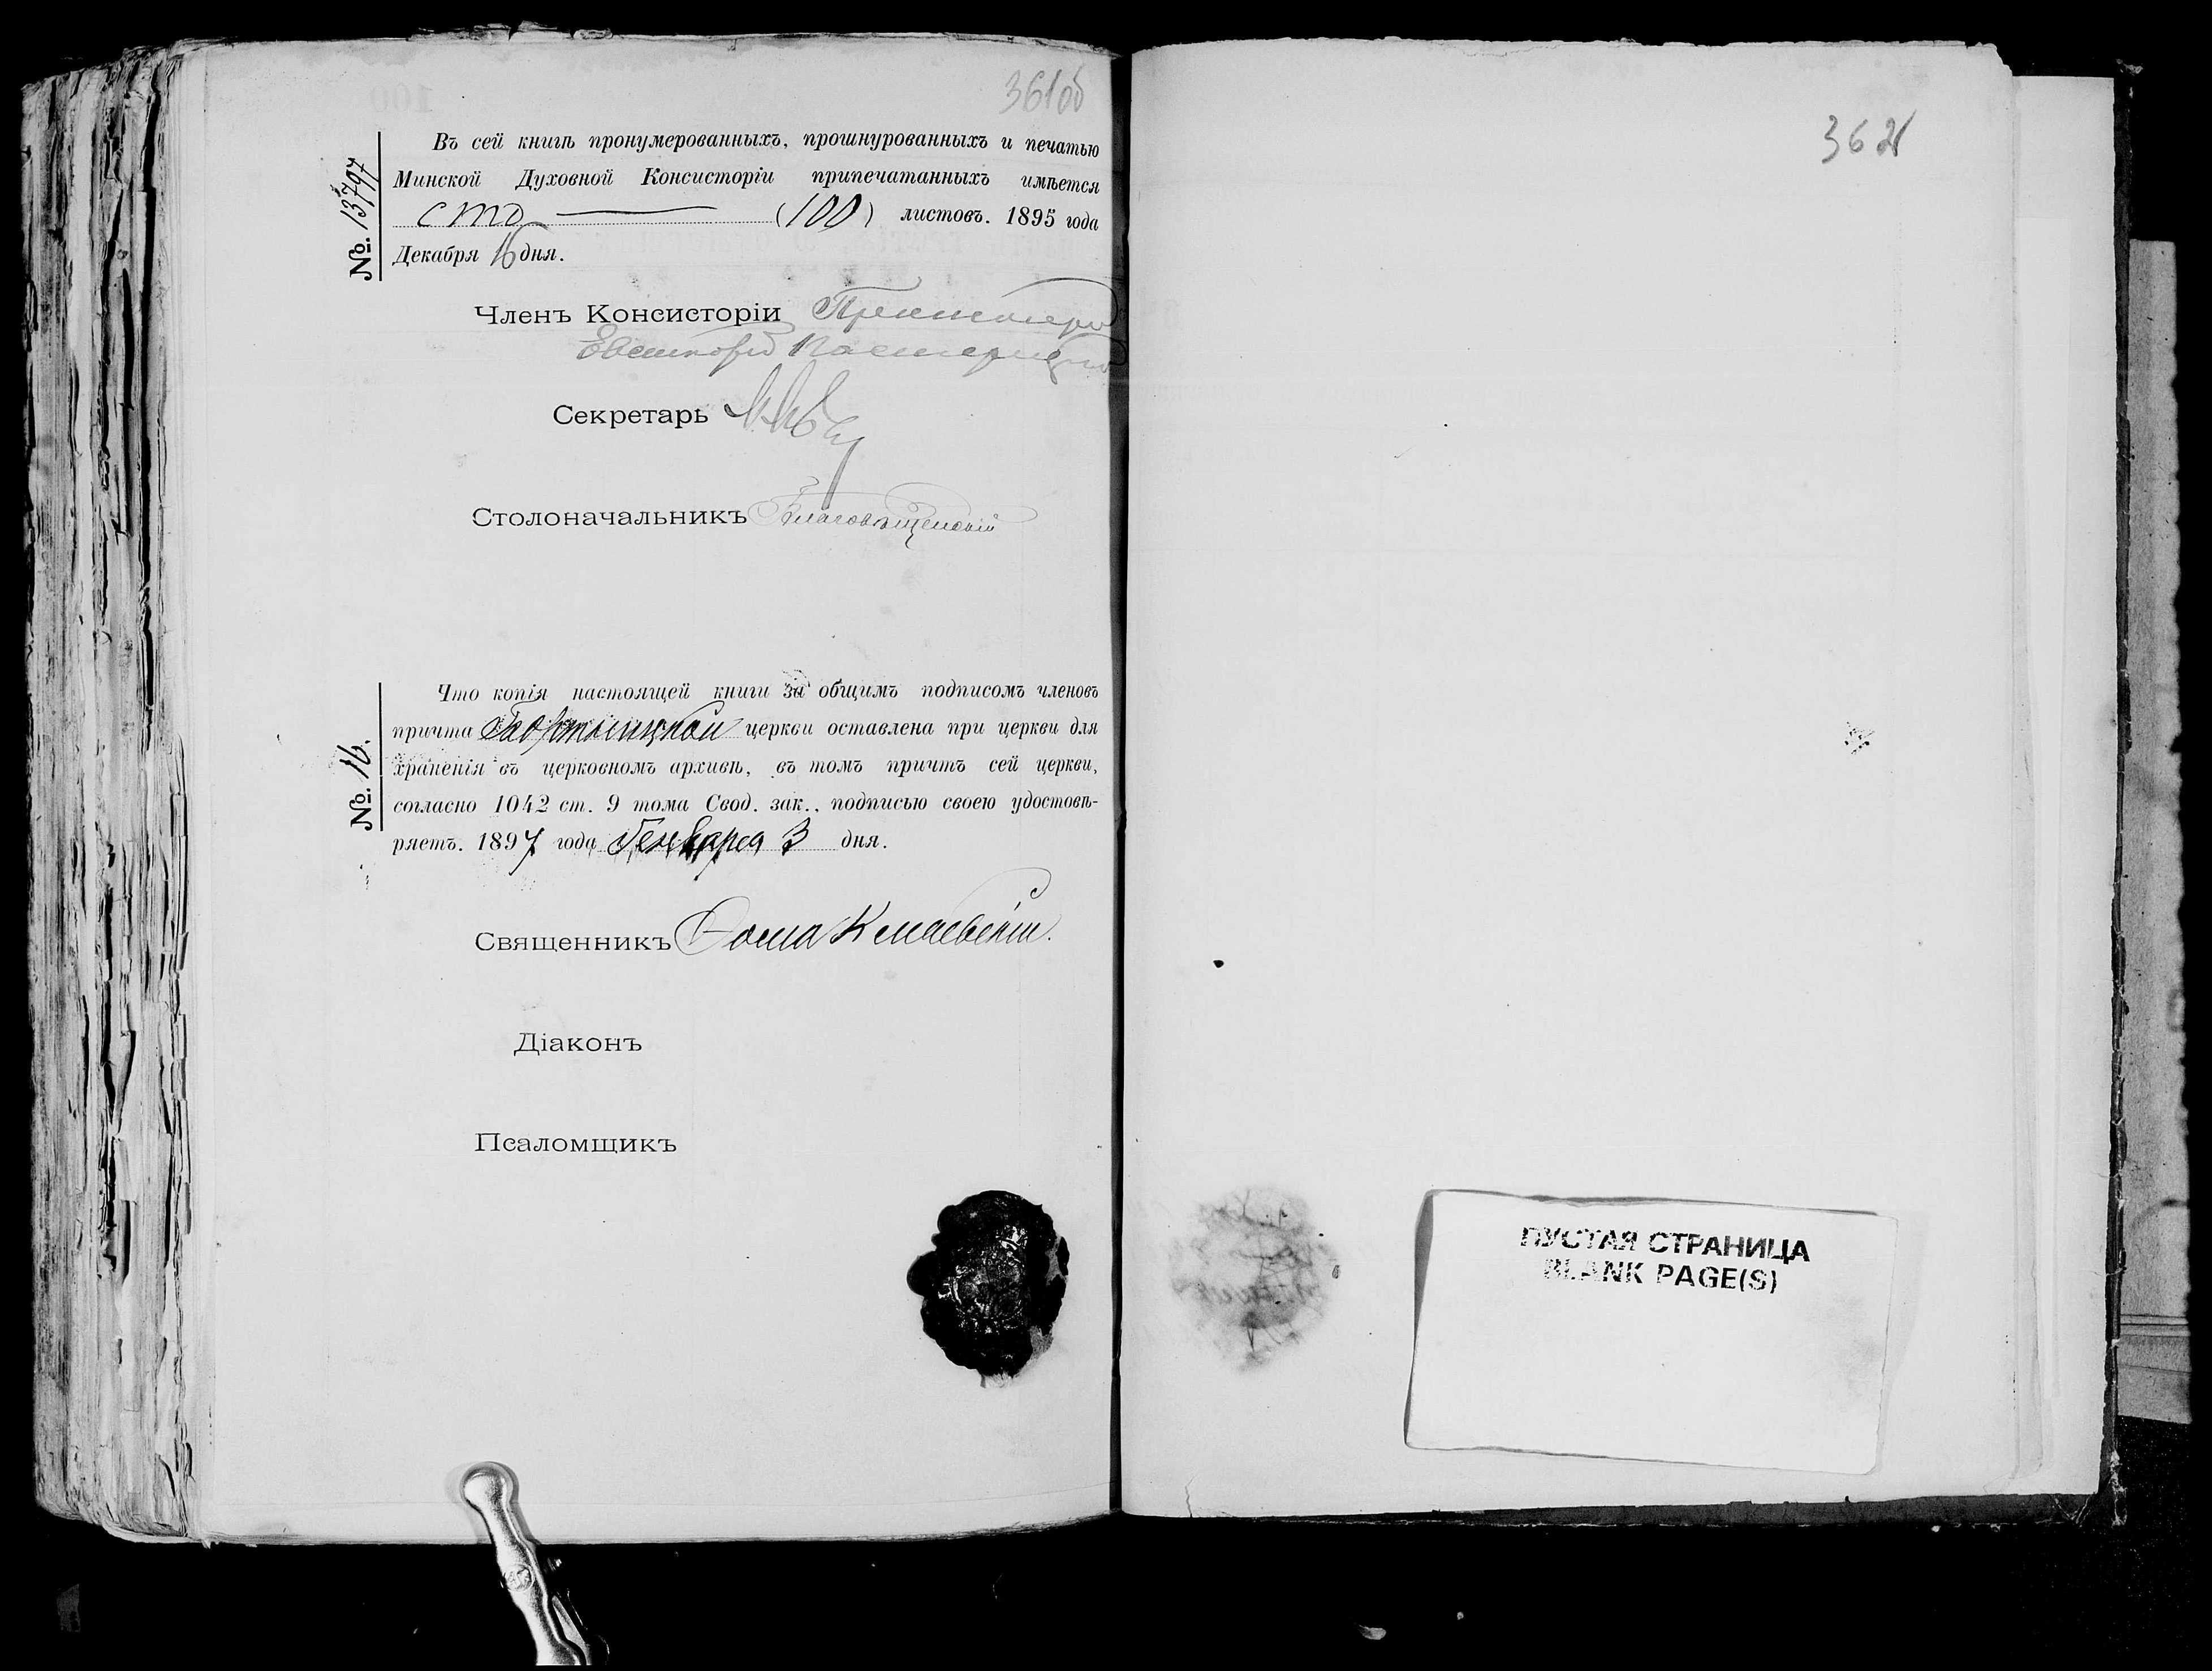 361об
Въ сей книгѣ пронумерованныхъ, прошнурованныхъ и печатью
Минской Духовной Консисторіи припечатанныхъ имѣется
сто (100) листовъ. 1895 года
Декабря 16 дня.
№ 13797
Членъ Консисторіи
Секретарь
Столоначальникъ Благовѣщенскій
Что копія настоящей книги за общимъ подписомъ членовъ
причта церкви оставлена при церкви для
храненія въ церковномъ архивѣ, въ томъ причтъ сей церкви,
согласно 1042 ст. 9 тома Свод. зак., подписью своею удостовѣ-
ряетъ. 1897 года Генваря 3 дня.
№ 16.
Священникъ Ѳома
Діаконъ
Псаломщикъ
362
ПУСТАЯ СТРАНИЦА
BLANK PAGE(S)